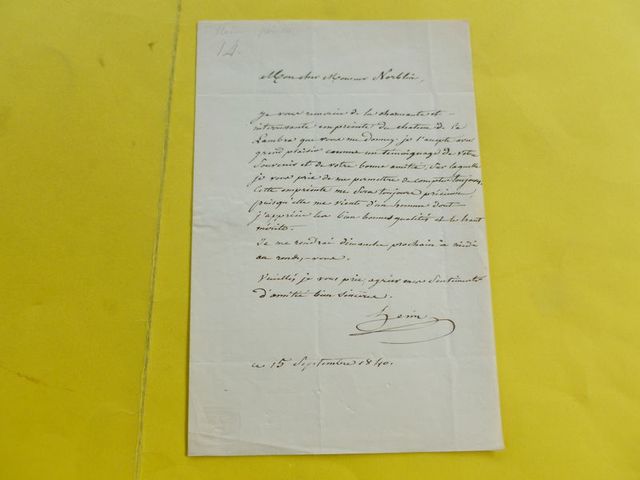 14.
Mon cher Monsieur Norblin,
Je vous remercie de la charmante et
interressante empreinte du chateau de la
que vous me donnez, je l'accepte avec
grand plaisir comme un témoignage de votre
Souvenir et de votre bonne amitié, Sur laquelle
je vous prie de me permettre de compter toujours,
Cette empreinte me Sera toujours précieuse
puisqu'elle me vient d'un homme dont
j'apprécie les bien bonnes qualités et le haut
mérite.
Je me rendrai dimanche prochain à midi
au rendez-vous.
Veuillez je vous prie agréer mes Sentiments
d'amitié bien Sincère.
ce 15 Septembre 1840.